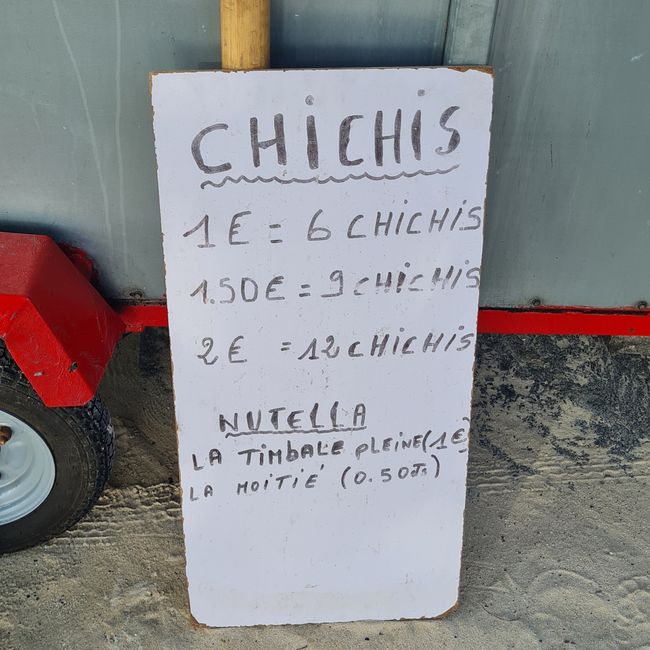 CHICHIS
1 E = 6 CHICHIS
1.50E = 9 CHICHIS
2 E = 12 CHICHIS
NUTELLA
LA TIMBALE PLEINE (1 E)
LA MOITIÉ (0.50